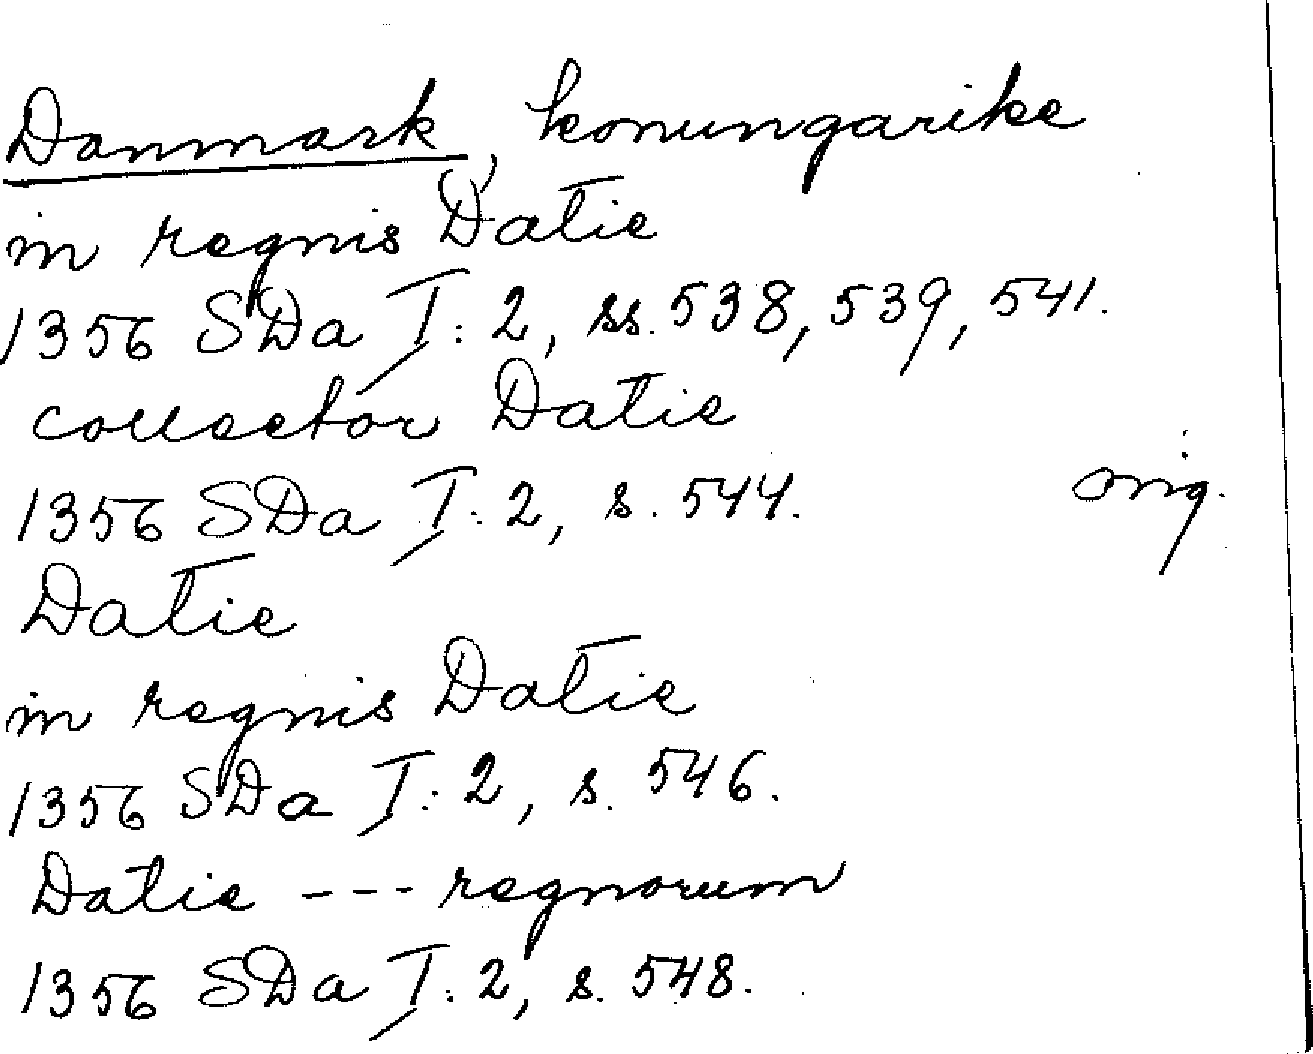 Danmark, konungarike
in regnis Datie
1356 SDa I:2, ss. 538, 539, 541.
collector Datie
1356 SDa I:2, s. 544. orig.
Datie
in regnis Datie
1356 SDa I:2, s. 546.
Datie --- regnorum
1356 SDa I:2, s. 548.